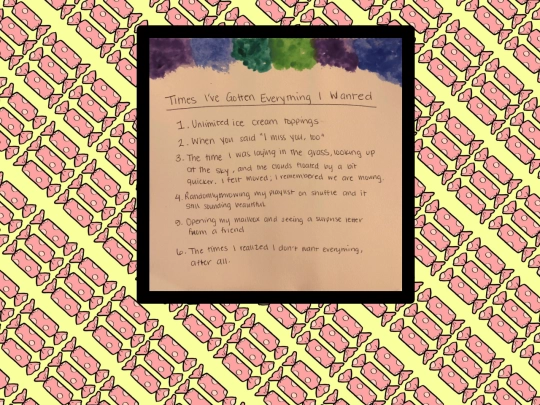 Times I've Gotten Everything I Wanted
1. Unlimited ice cream toppings
2. When you said "I miss you, too"
3. The time I was laying in the grass, looking up
at the sky, and the clouds floated by a bit
quicker. I felt moved; I remembered we are moving.
4. Randomly throwing my playlist on shuffle and it
still sounding beautiful
5. Opening my mailbox and seeing a surprise letter
from a friend
6. The times I realized I don't want everything,
after all.